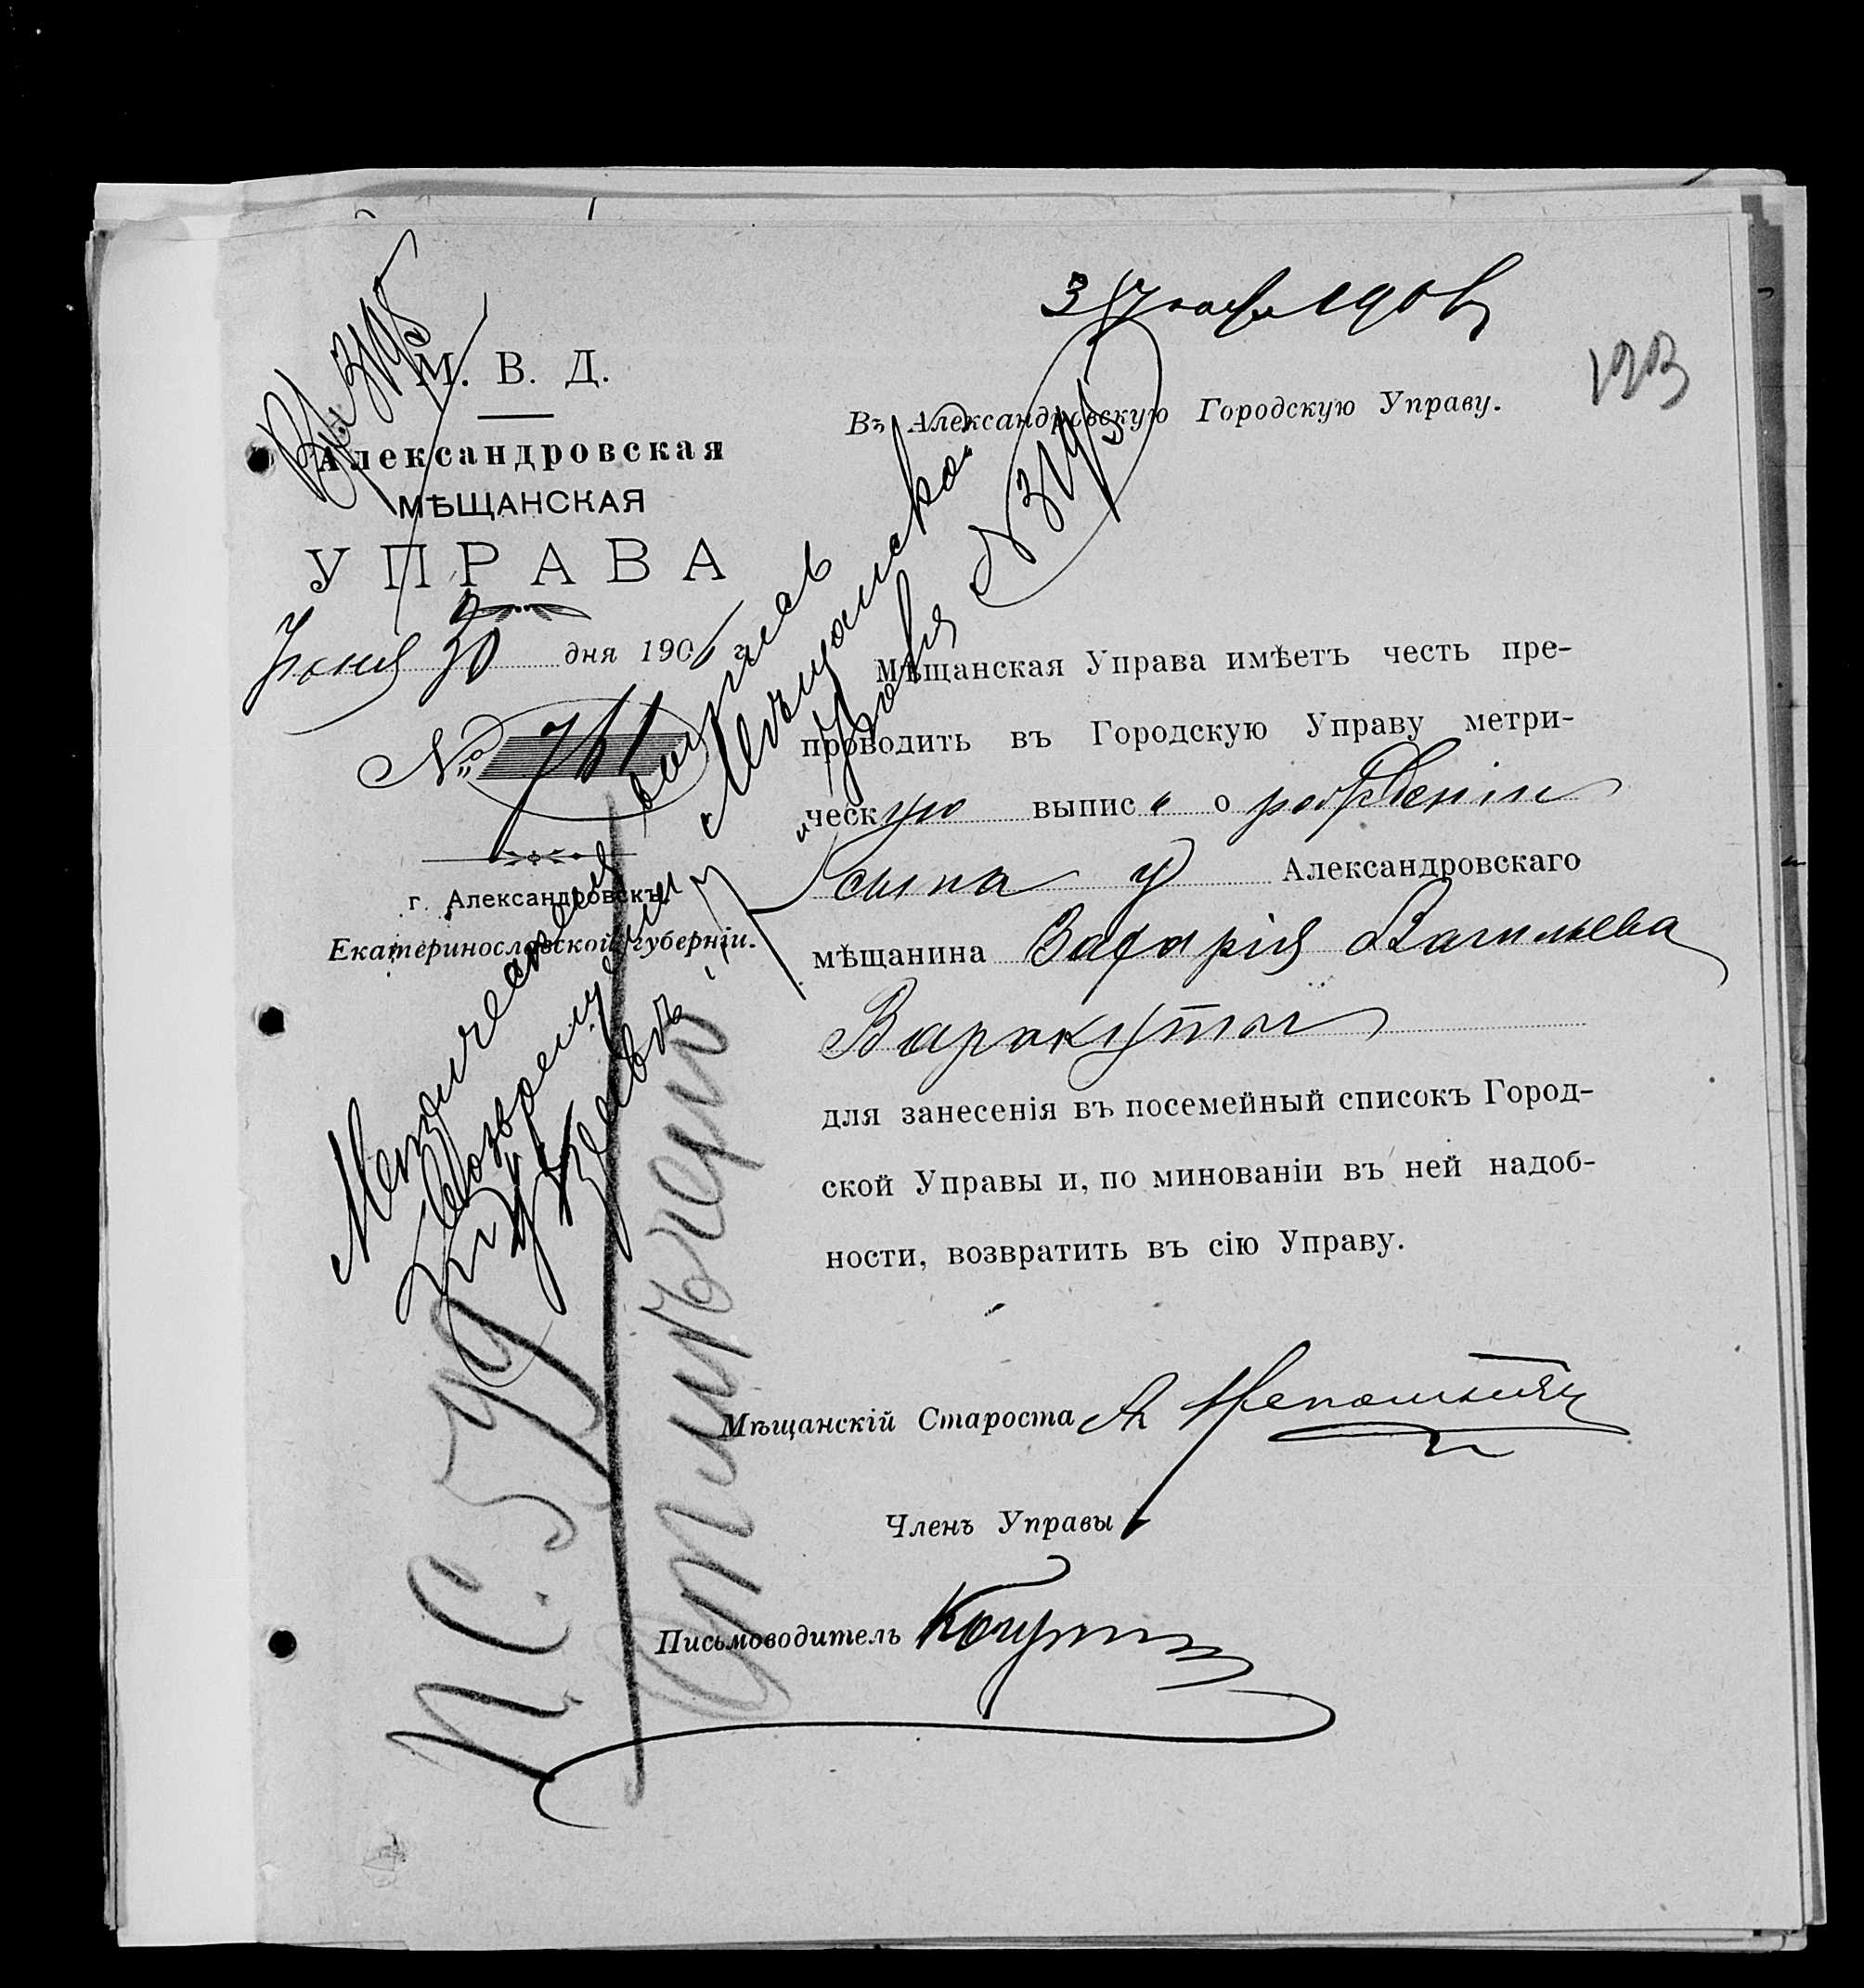 193
М. В. Д.
Александровская
МѢЩАНСКАЯ
УПРАВА
Іюня 30 дня 190 г.
№ 761
г. Александровскъ,
Екатеринославской губерніи.
Въ Александровскую Городскую Управу.
Мѣщанская Управа имѣетъ честь пре-
проводить въ Городскую Управу метри-
ческую выпись о рожденіи
сына у Александровскаго
мѣщанина Захарія Васильева
Варакуты
для занесенія въ посемейный списокъ Город-
ской Управы и, по минованіи въ ней надоб-
ности, возвратить въ сію Управу.
Мѣщанскій Староста
Членъ Управы
Письмоводитель
Метрическая выпись
возвращена
Мѣщанской
Управѣ № 3195
П.С. 579
Отмѣчено